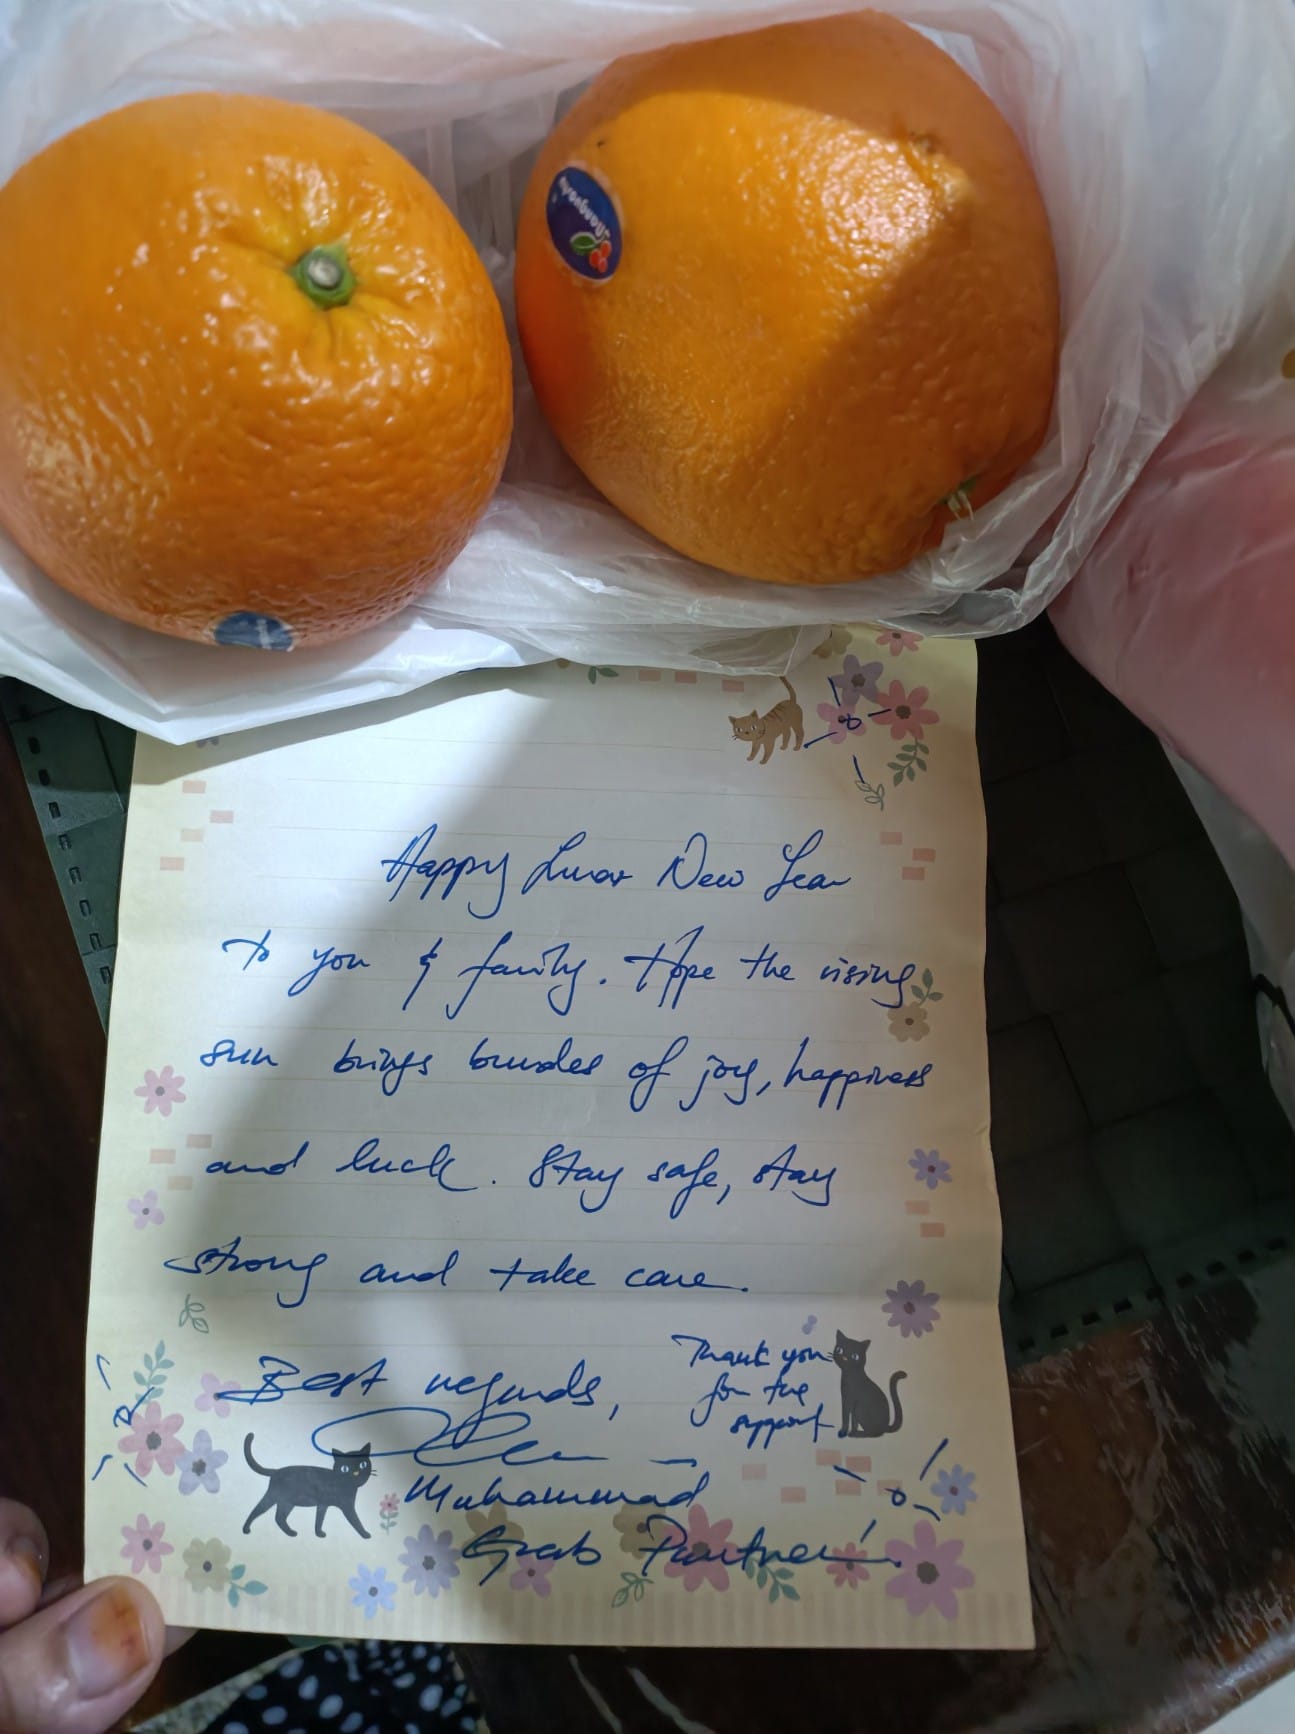 Happy Lunar New Year
to you & family. Hope the rising
sun brings bundles of joy, happiness
and luck. Stay safe, stay
strong and take care.
Thank you
for the
support
Best regards,
Muhammad
Grab Partner